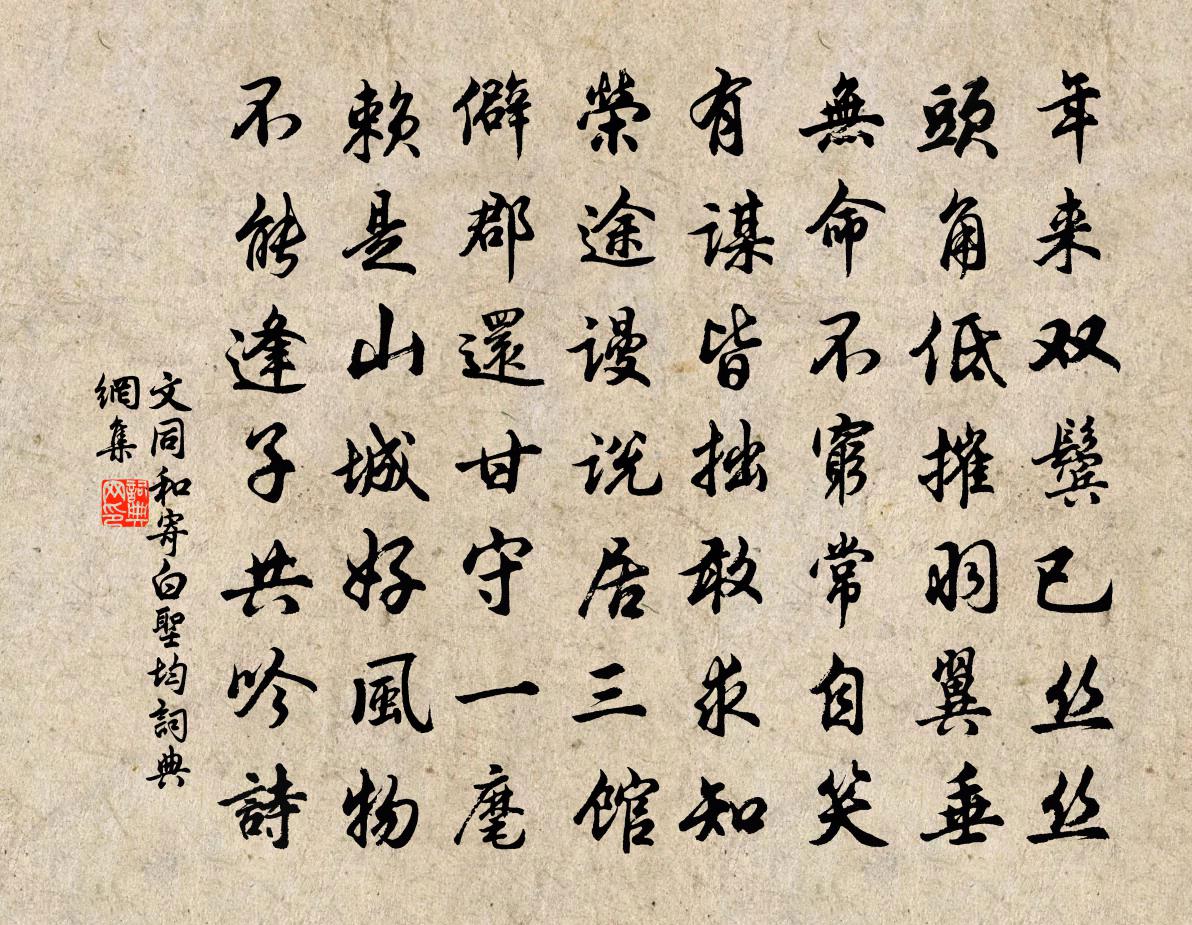 年来双鬢已丝丝
頭角低摧羽翼垂
無命不窮常自笑
有謀皆拙敢求知
榮途謾説居三館
僻郡還甘守一麾
賴是山城好風物
不能逢子共吟詩
文同和寄白聖均詞典
網集
詞典網印